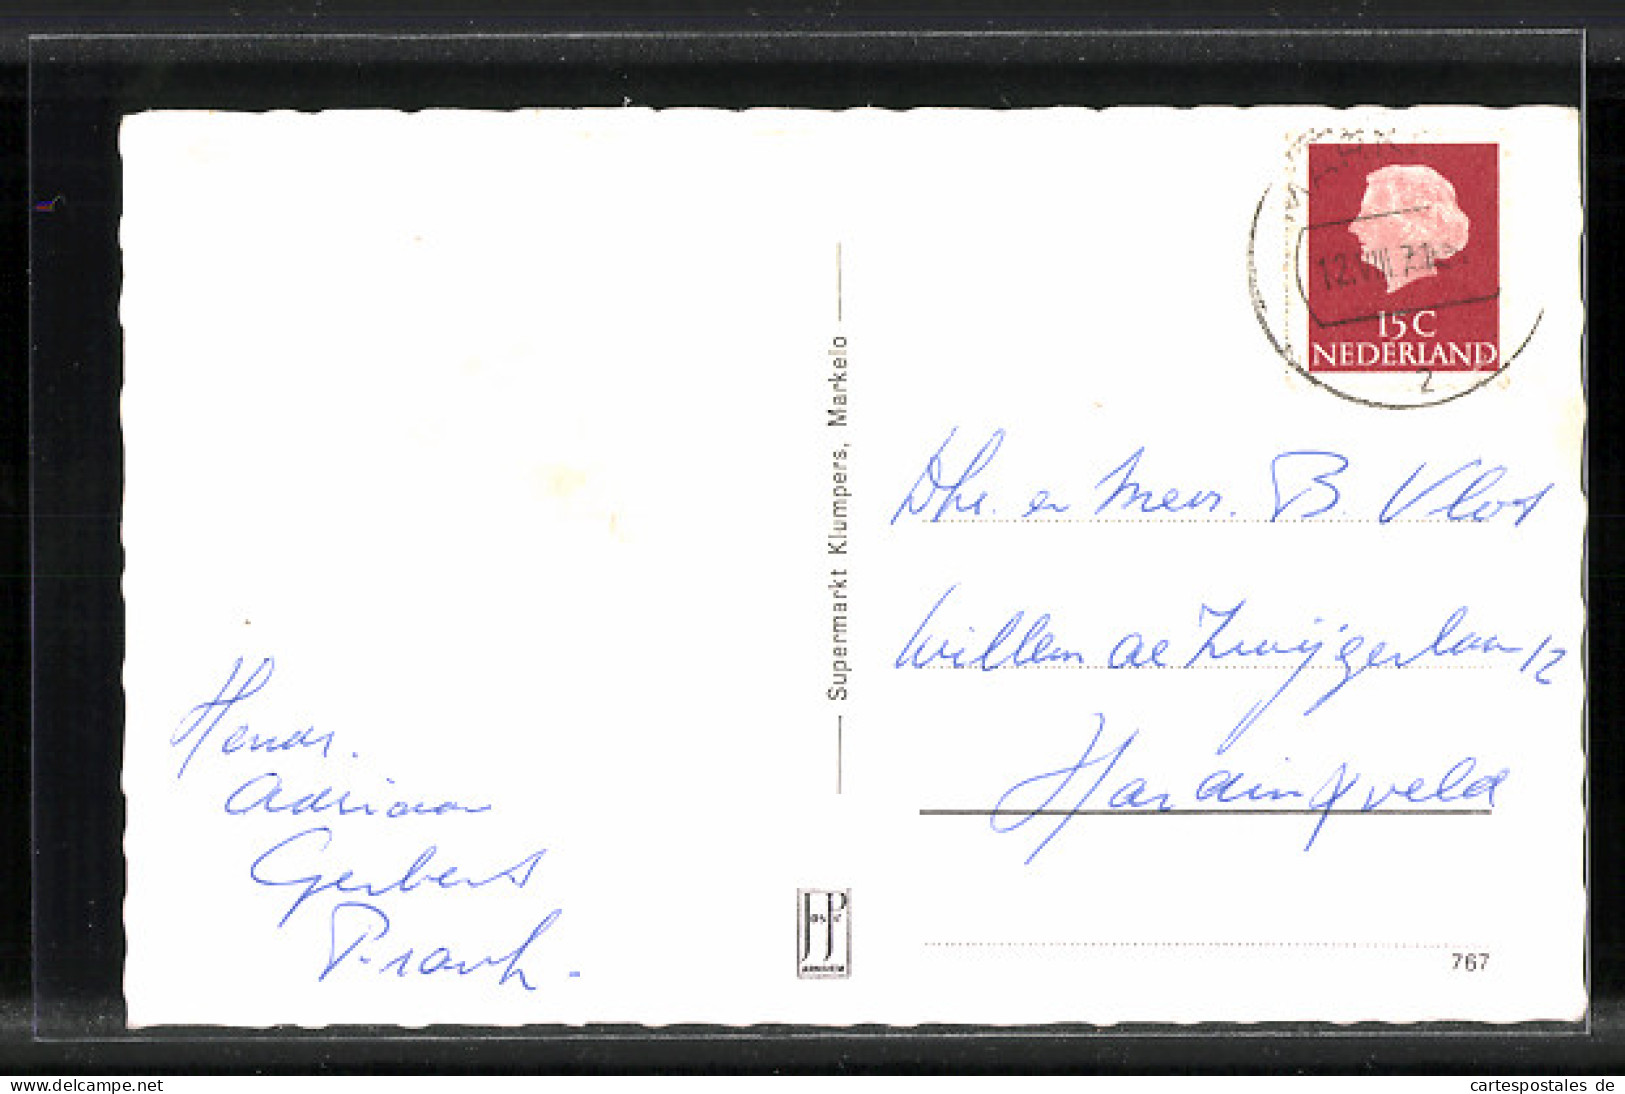 MARK
12.VIII 71
15C
NEDERLAND
2
Supermarkt Klumpers, Markelo
Dhr. en Mevr. B. Vlot
Willem de Zwijgerlaan 12
Hardinxveld
Adriaan
Gerbert
Frank.
JosPé
ARNHEM
767
delcampe.net
cartespostales de